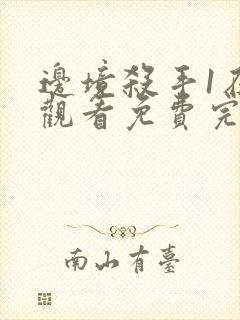 邊境殺手1在
觀看免費完
南山有臺